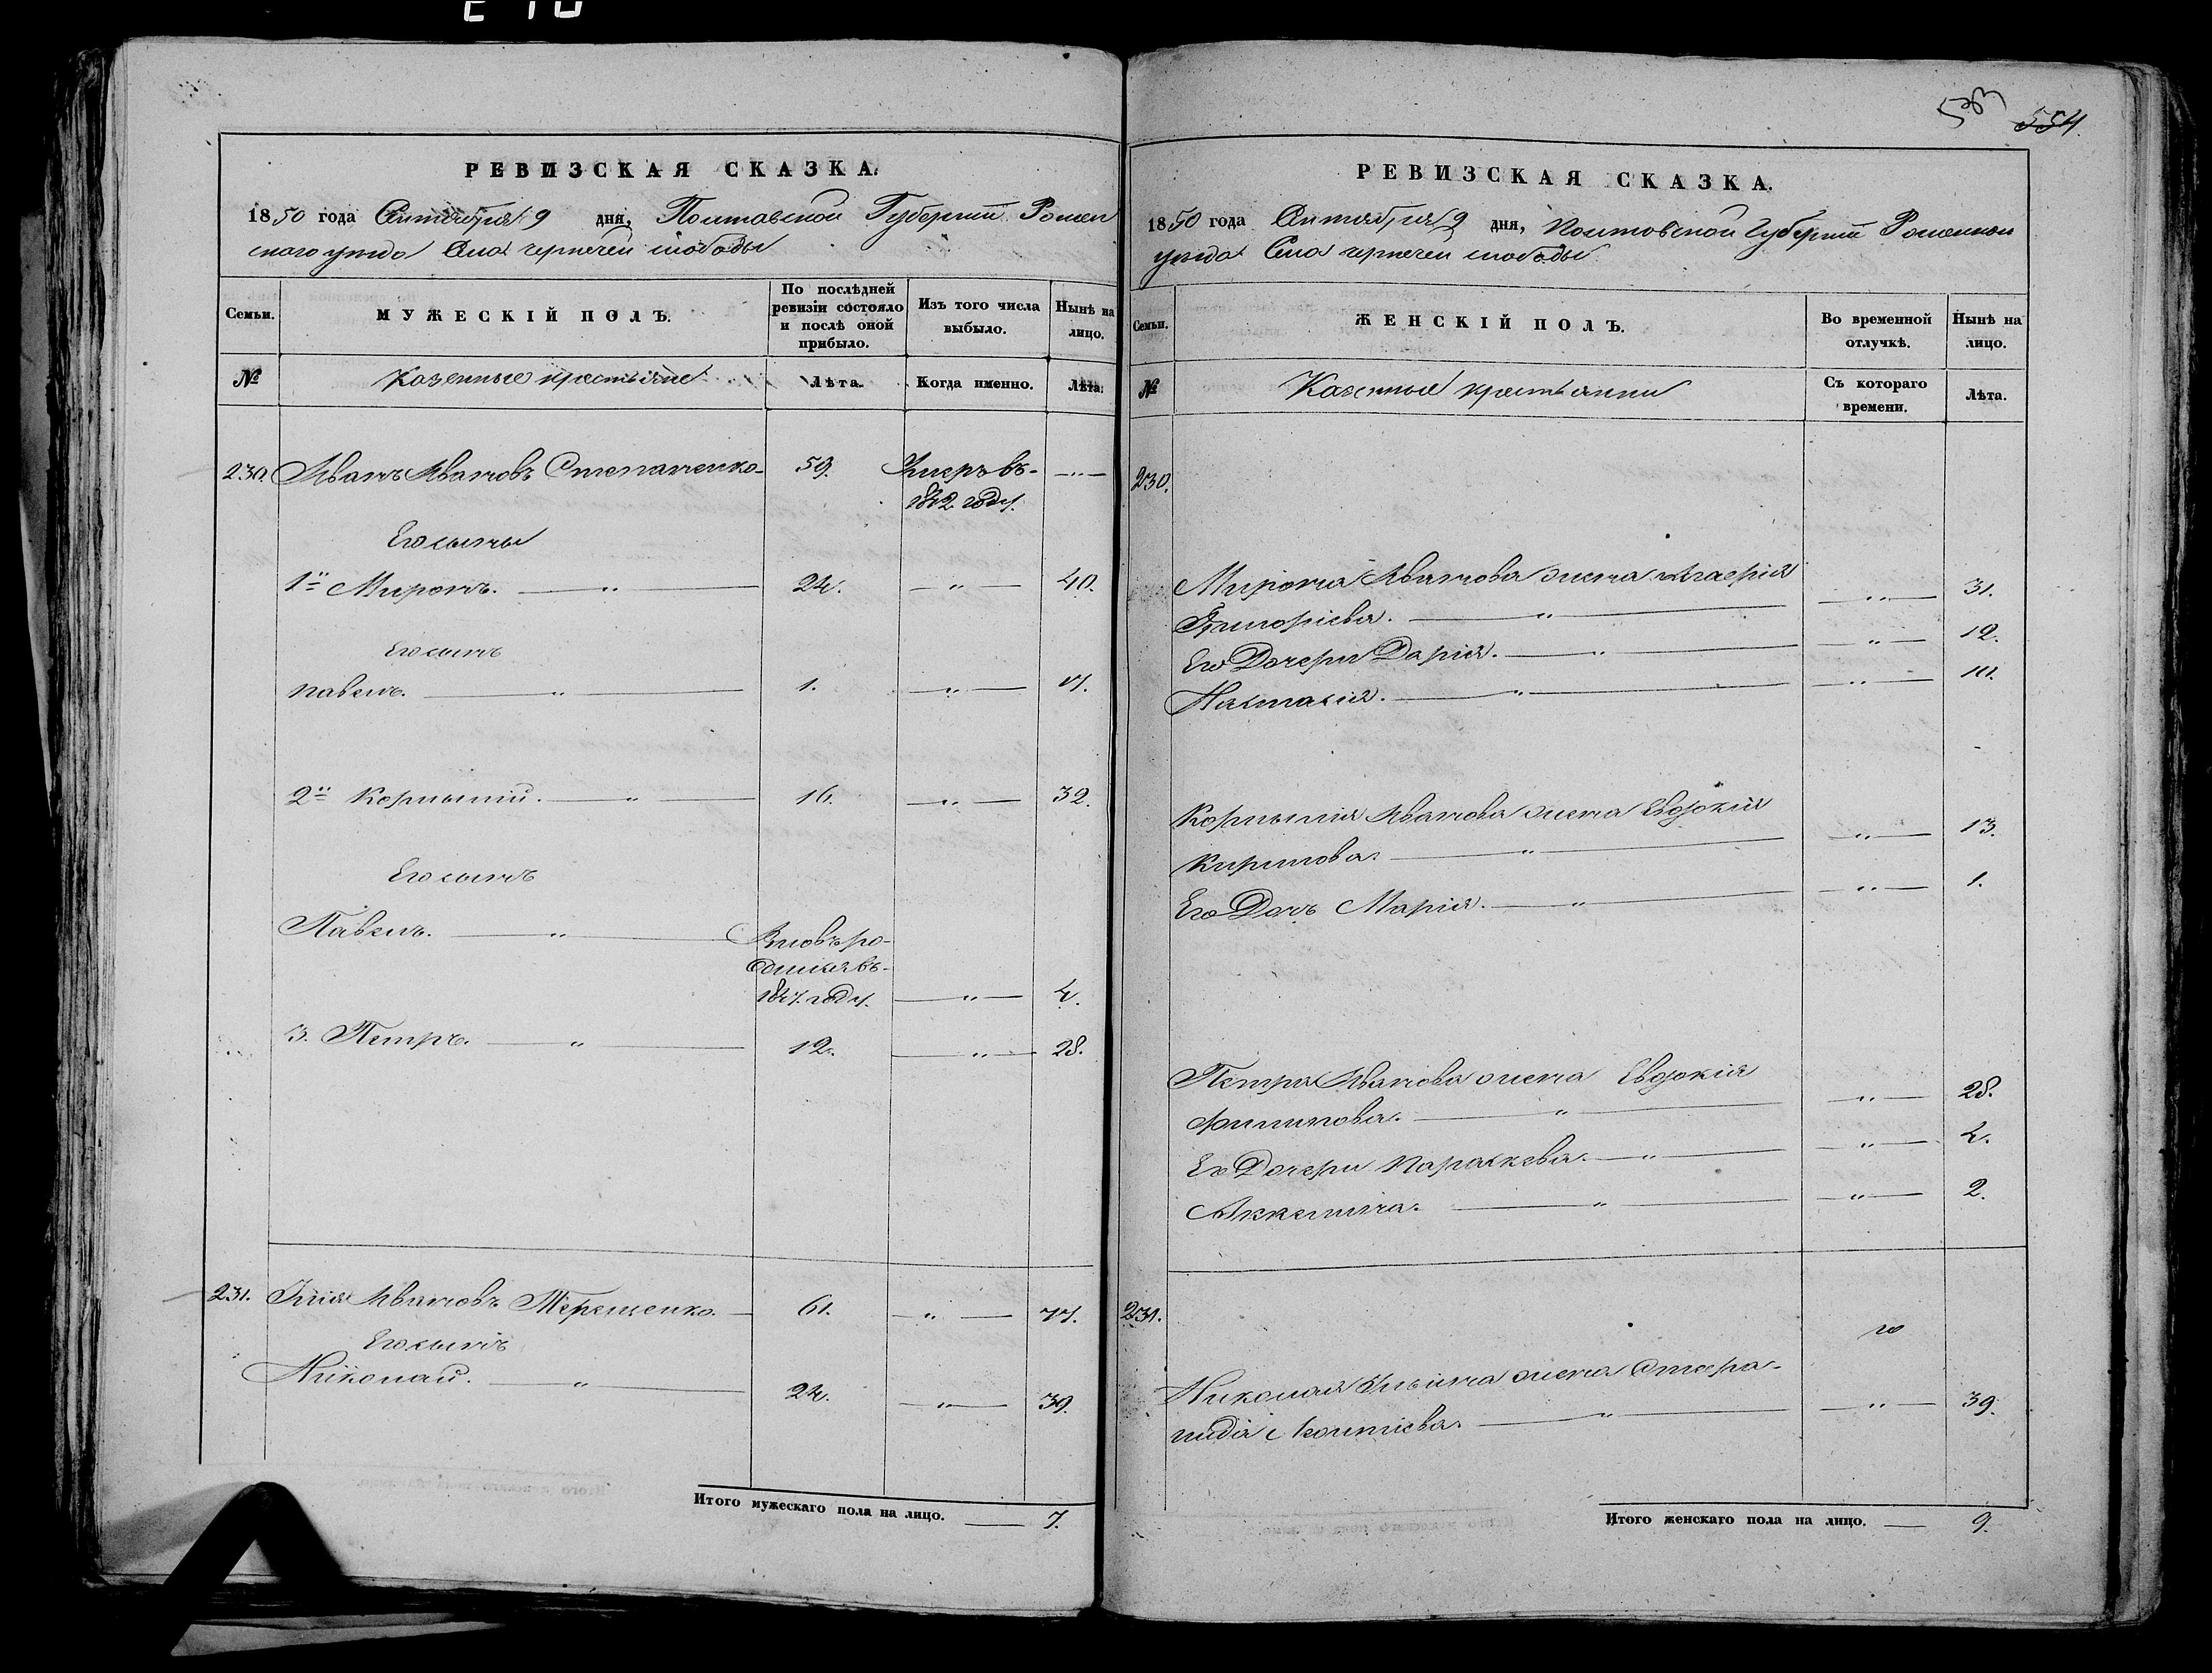 533
554.
РЕВИЗСКАЯ СКАЗКА.
1850 года Сентября 9 дня, Полтавской Губернiи Ромен
скаго уезда Села чернечей слободы
Семьи. МУЖЕСКІЙ ПОЛЪ. По послѣдней ревизіи состояло и послѣ оной прибыло. Изъ того числа выбыло. Нынѣ на лицо.
№ Казенные крестьяне Лѣта. Когда именно. Лѣта.
230. Иванъ Ивановъ Степаненко 59. Умеръ въ
1842 году.
Его сыны
1й Миронъ. " 24. " 40.
Его сынъ
Павелъ. " 1. " 17.
2й Корнылій. " 16. " 32.
Его сынъ
Павелъ. " Вновь ро-
дился въ
1847 году. " 4.
3. Петръ. " 12. " 28.
231. Илія Ивановъ Терещенко. 61. " 77.
Его сынъ
Николай. " 24. " 39.
Итого мужескаго пола на лицо. 7.
РЕВИЗСКАЯ СКАЗКА.
1850 года Сентября 9 дня, Полтавской Губерніи Роменскаго
уезда Села чернечей слободы
Семьи. ЖЕНСКІЙ ПОЛЪ. Во временной отлучкѣ. Нынѣ на лицо.
№ Казенные крестьянки Съ котораго времени. Лѣта.
230.
Мирона Иванова жена
Григоріева. " " 31.
Его Дочери Дарія. " " 12.
Настасія. " "
Корнылія Иванова жена Евдокія
Кирилова. " " 13.
Его Дочь Марія. " " 1.
Петра Иванова жена Евдокія
Филипова. " " 28.
Его Дочери Параскева. " " 4.
Аккелина. " " 2.
231.
Николая Ильина жена Стефа-
нидія " " 39.
Итого женскаго пола на лицо. 9.